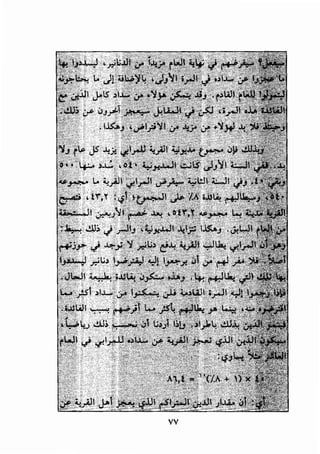 سيفعل؟ سيقرضهم في نهاية العام مزيداً من الدنانير، ليسددوا بها
ما عجزوا عن سداده في المرة الأولى، بالإضافة إلى ما يحتاجونه
ليتمولوا للعام القادم. وقد يتمكن هؤلاء من سداد كامل الدين مع
الفائدة هذه المرة، لكن في المقابل سيعجز آخرون عن ذلك.
وحينئذ فلا بد لهؤلاء من مزيد من الاقتراض، وهكذا.
وبذلك فإن مجموع مديونية القرية للمرابي يزيد كل عام ولا
بد. ففي السنة الأولى كانت المديونية ٥٤٠، سُدد منها ٥٠٠
وبقي ٤٠. وفي السنة الثانية سيقرض المرابي القرية ما مجموعه
٥٤٠، وسيطالبهم بفائدة ٨٪ على المجموع، أي: ٤٣,٢، فتصبح
القرية مدينة بما مجموعه ٥٤٣,٢ بعد خصم الأربعين المستحقة
من العام السابق. وهكذا تتزايد المديونية، والسر في ذلك بسيط:
وهو أن المرابي يطالب القرية بدفع دنانير لا توجد في حوزتهم
أصلاً. فلا مفر لهم من أن يرجعوا إليه ليقترضوا دنانير ليسددوا
بها تلك التي يطالبهم بها. وهكذا ستكون بفائدة بطبيعة الحال.
فإذا رجعوا إليه المرة القادمة فلن يتمكنوا من سداد أكثر مما
اقترضوه منه، بينما هو يطالبهم بأكثر مما أقرضهم بسبب الفائدة.
فينمو الدين بذلك باطراد. وإذا أردنا أن نحسب ذلك رياضياً،
فسيكون الدين الذي تعجز القرية عن سداده للمرابي في العام
العاشر مثلاً يساوي:
٤٠ × (١ + ٨٪)١٠ = ٨٦,٤
أي: أن مقدار الدين المتراكم الذي يعجز أهل القرية عن
٧٧